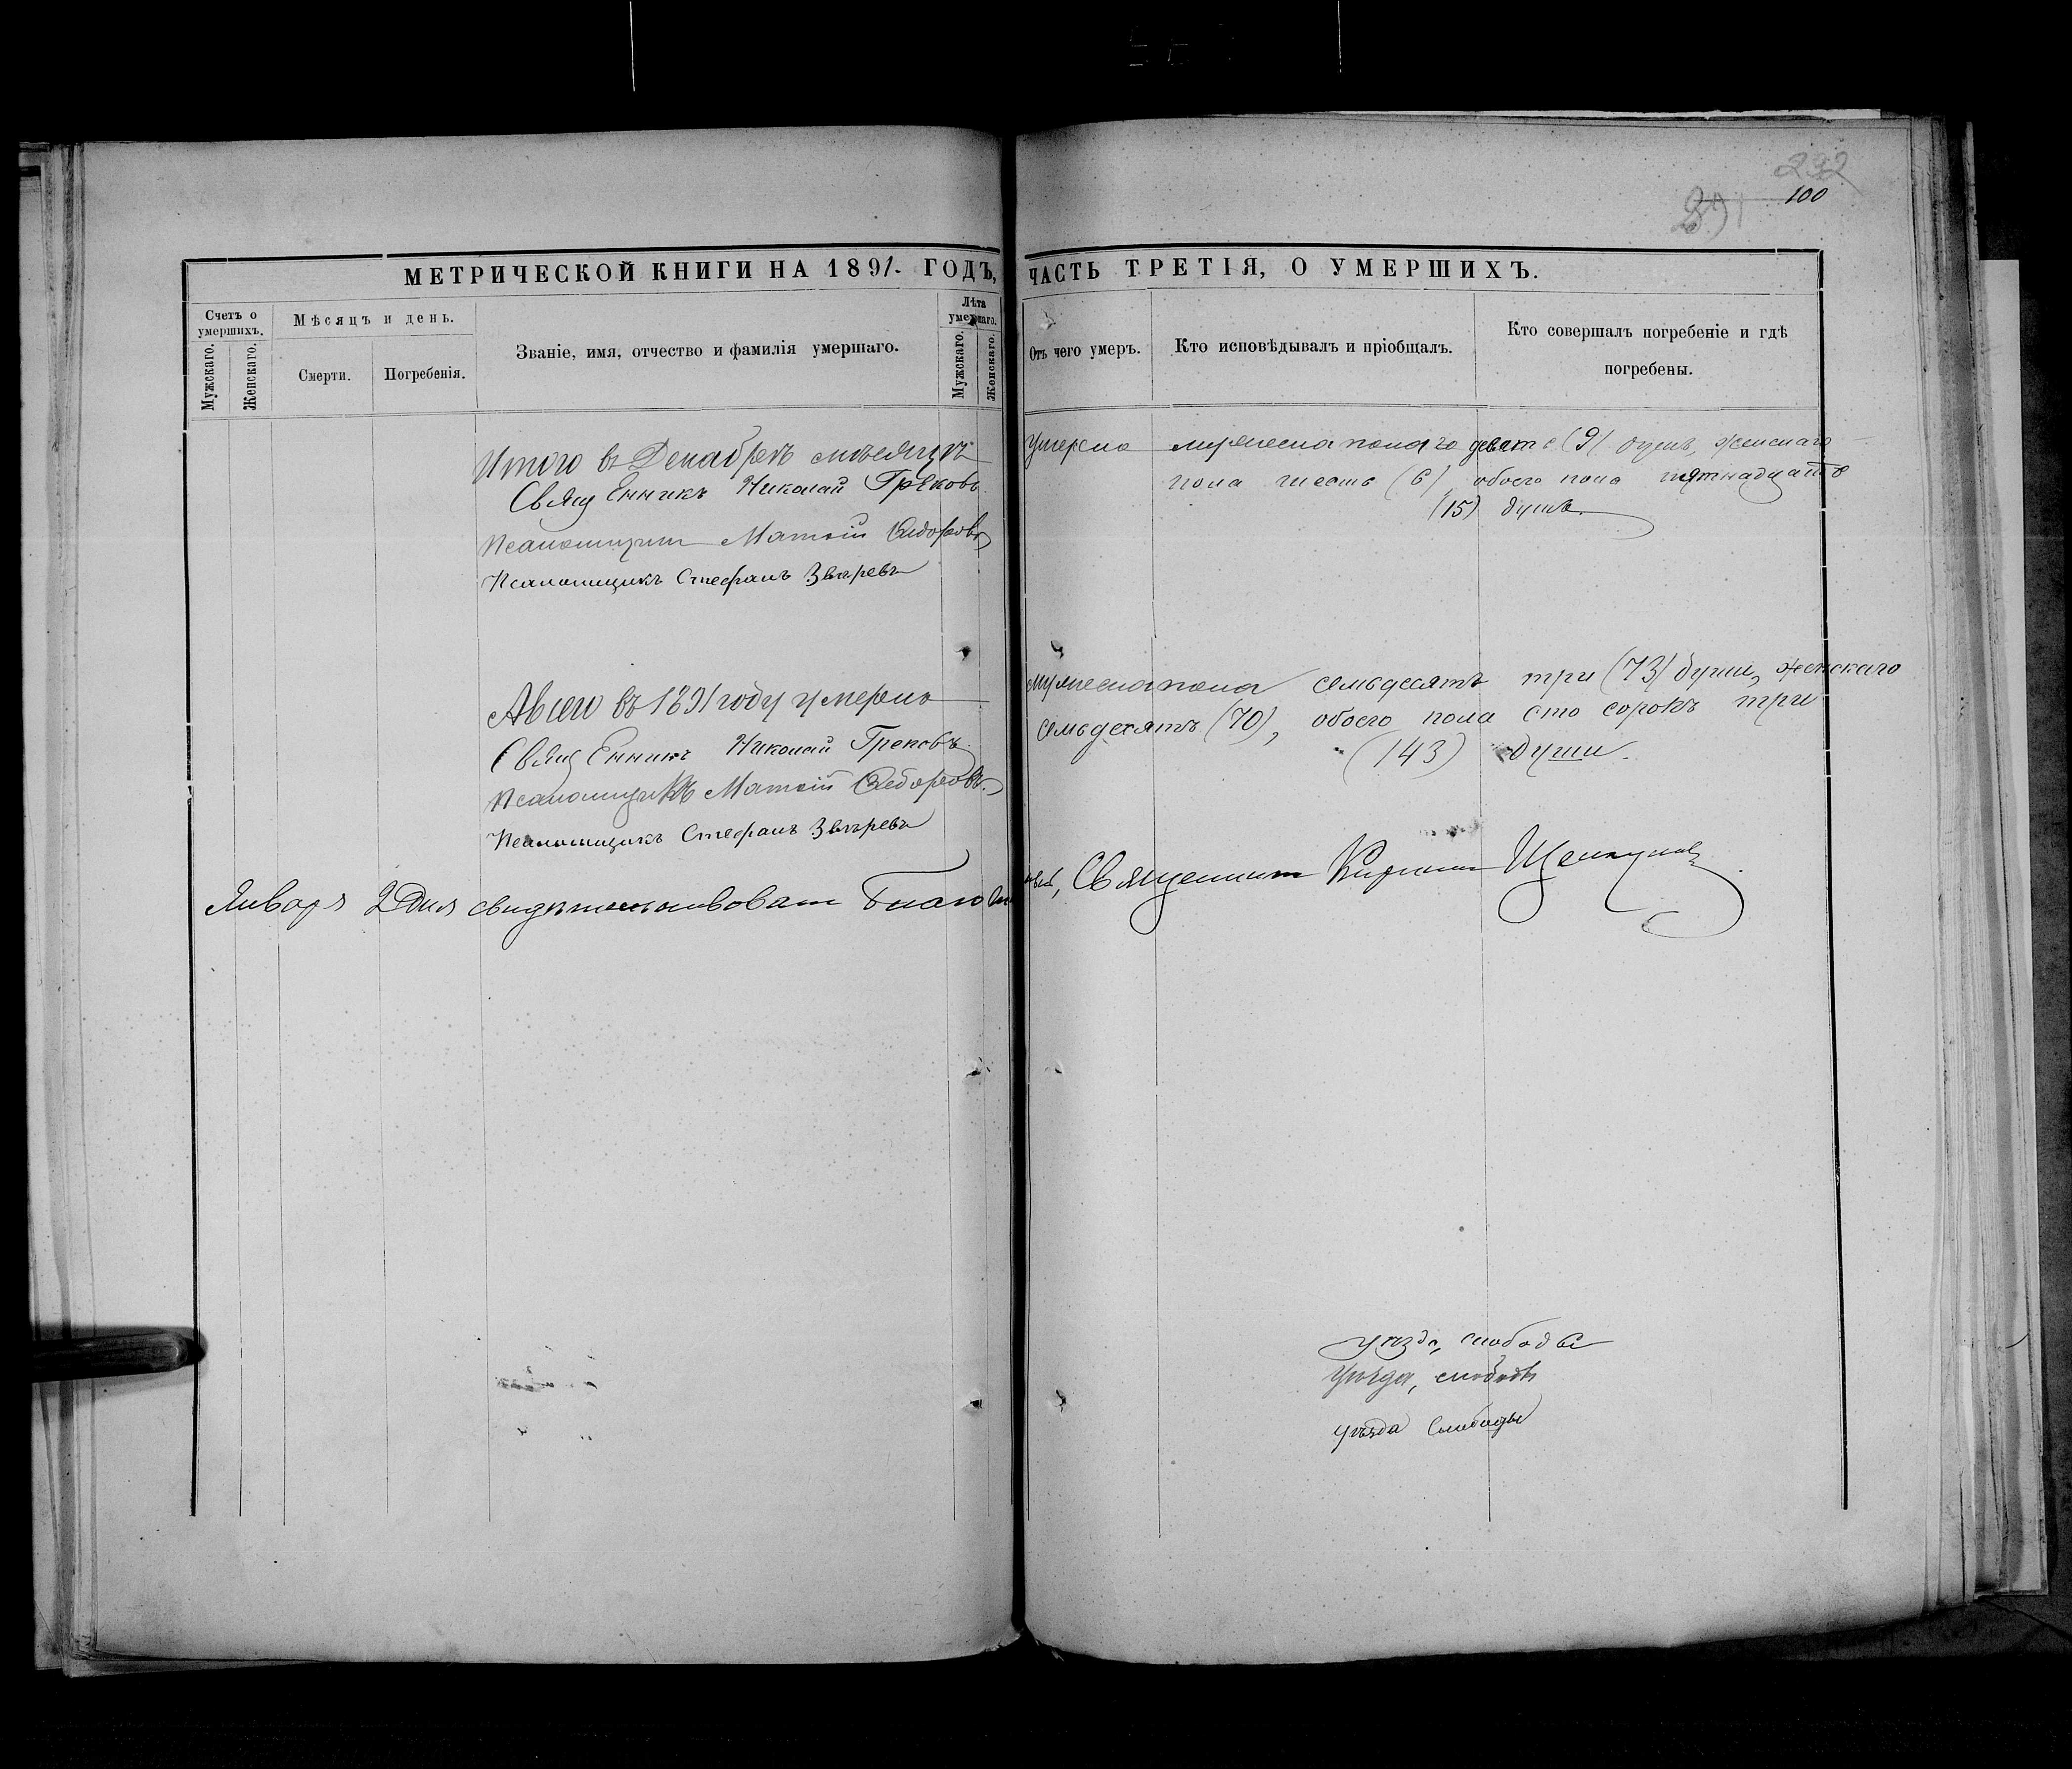 292
100
291
МЕТРИЧЕСКОЙ КНИГИ НА 1891 ГОДЪ, ЧАСТЬ ТРЕТІЯ, О УМЕРШИХЪ.
Счетъ о умершихъ.
Мужскаго.
Женскаго.
Мѣсяцъ и день.
Смерти.
Погребенія.
Званіе, имя, отчество и фамилія умершаго.
Лѣта умершаго.
Мужскаго.
Женскаго.
Отъ чего умеръ.
Кто исповѣдывалъ и пріобщалъ.
Кто совершалъ погребеніе и гдѣ погребены.
Итого въ Декабрѣ мѣсяцѣ умерло мужеска пола девять (9) душъ, женскаго
пола шесть (6), обоего пола пятнадцать
(15) душъ.
Священникъ Николай Грековъ
Псаломщикъ Матѳій Ѳедоровъ
Псаломщикъ Стефанъ Звѣревъ
А всего въ 1891 году умерло мужеска пола семьдесятъ три (73) души, женскаго
семьдесятъ (70), обоего пола сто сорокъ три
(143) души.
Священникъ Николай Грековъ
Псаломщикъ Матѳій Ѳедоровъ.
Псаломщикъ Стефанъ Звѣревъ
Января 2 дня свидѣтельствовалъ Священникъ
уѣзда, слободы
Уѣзда, слободы
Уѣзда Слободы